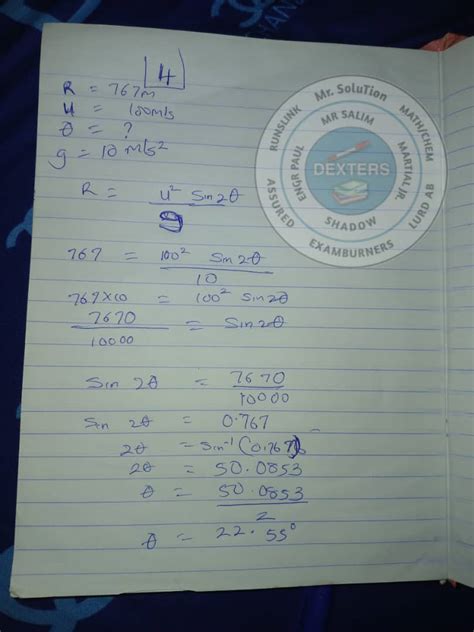 4
R = 767m
u = 100m/s
θ = ?
g = 10 m/s²
R = u² Sin2θ
g
767 = 100² Sin 2θ
10
767×10 = 100² Sin2θ
7670 = Sin2θ
10000
Sin 2θ = 7670
10000
Sin 2θ = 0.767
2θ = Sin⁻¹(0.767)
2θ = 50.0853
θ = 50.0853
2
θ = 22.55°
Mr. SoluTion
MATH/CHEM
MARTIAL JR.
LURD AB
EXAMBURNERS
ASSURED
RUNSLINK
ENGR PAUL
MR SALIM
SHADOW
DEXTERS